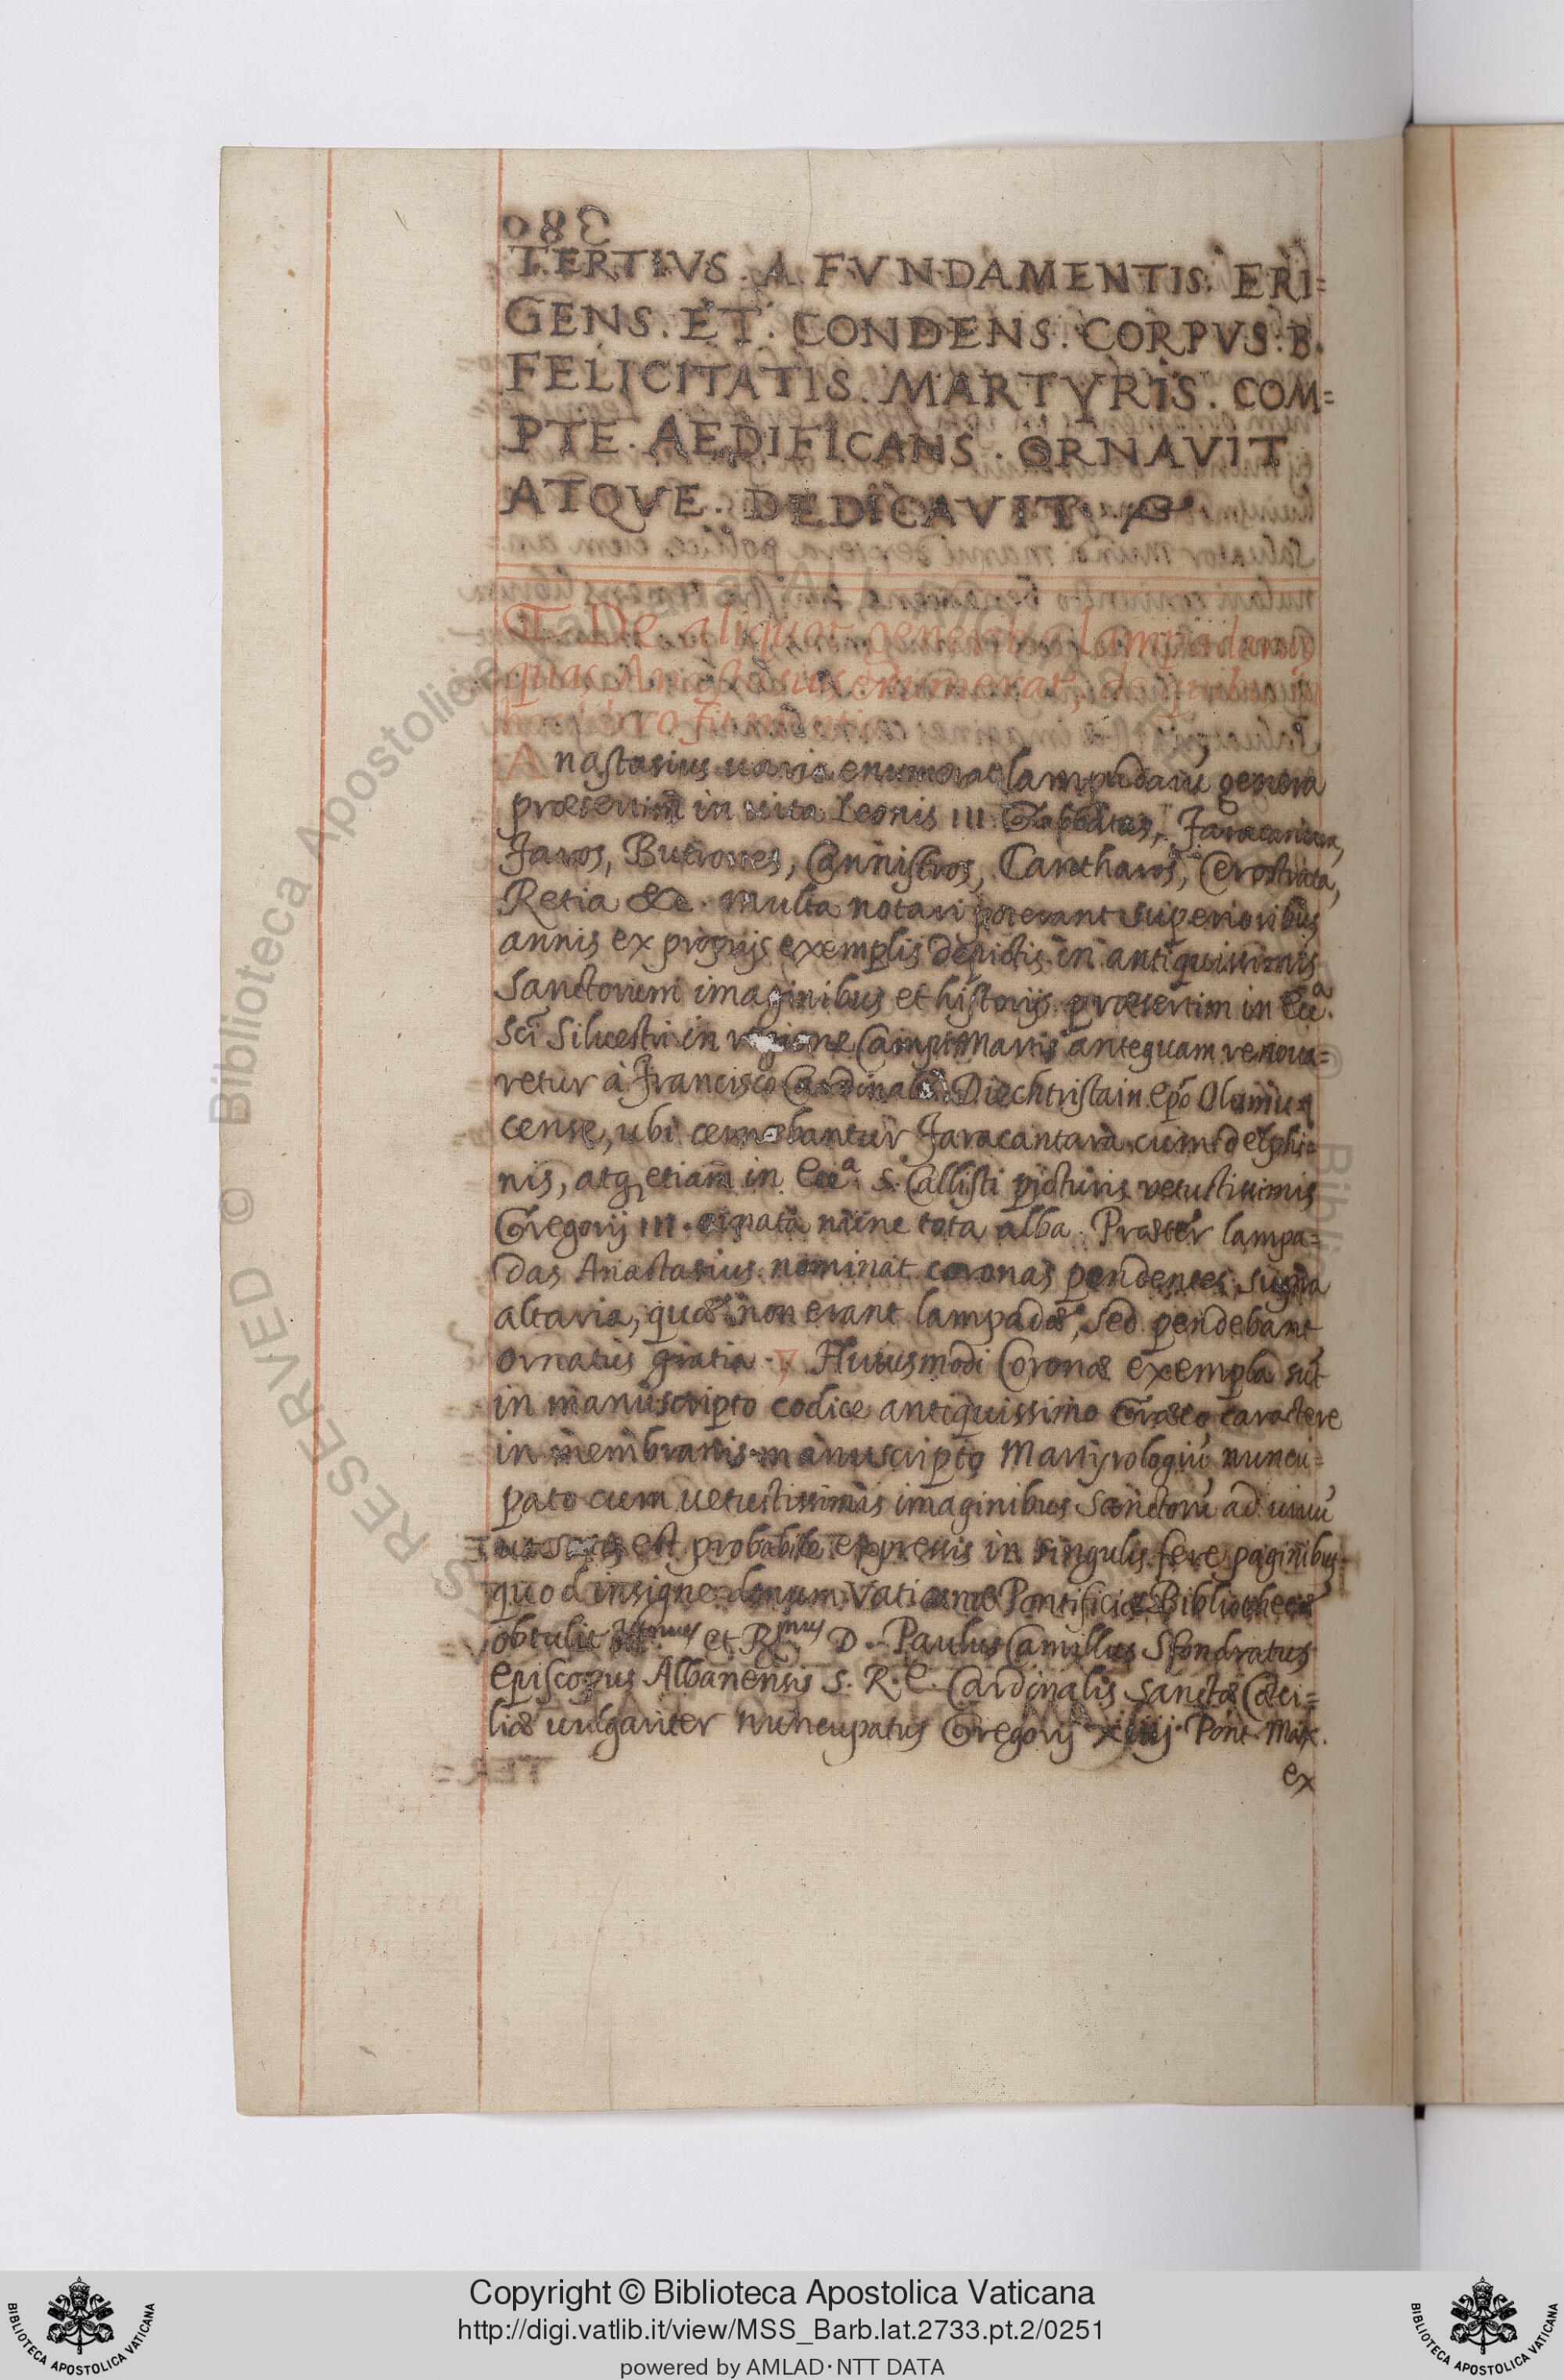 TERTIVS. A FVNDAMENTIS. ERI=
GENS. ET. CONDENS. CORPVS. B.
FELICITATIS. MARTYRIS. COM=
PTE. AEDIFICANS. ORNAVIT
ATQVE. DEDICAVIT.
De aliquot generibus lampadarum
quas Anastasius enumerat, de quibus in
hoc libro fit mentio
Anastasius varia enumerat lampadarū genera
præsertim in vita Leonis III. Gabbatas, Faracantara,
Faros, Butrones, Cannistros, Cantharos, Cerostrata,
Retia &c. Multa notari poterant superioribus
annis ex proprijs exemplis depictis in antiquissimis
Sanctorum imaginibus et historijs præsertim in Ecc.a
Sci Silvestri in regione Campi Martis antequam renova=
retur à Francisco Cardinale Diechtristain Epo Olumu
cense, ubi cernebantur Faracantara cum delphi=
nis, atq, etiam in Ecc.a S. Callisti picturis vetustissimis
Gregorij III. nunc tota alba. Præter lampa=
das Anastasius nominat coronas pendentes supra
altaria, quæ non erant lampadæ, sed pendebant
ornatus gratia. Huiusmodi Coronæ exempla sūt
in manuscripto codice antiquissimo Græco caractere
in membranis manuscripto Martyrologiū nuncu=
pato cum vetustissimis imaginibus Sanctorū ad vivū
ut satis est probabile expressis in singulis fere paginibus
quod insigne donum Vaticanæ Pontificiæ Bibliothecæ
obtulit Ill.mus et R.mus D. Paulus Camillus Sfondratus
Episcopus Albanensis S. R. E. Cardinalis Sanctæ Cæci=
liæ vulgariter nuncupatus Gregorij xiiij. Pont. Max.
ex
380
TER=
© Biblioteca Apostolica Vaticana
RESERVED
Copyright © Biblioteca Apostolica Vaticana
http://digi.vatlib.it/view/MSS_Barb.lat.2733.pt.2/0251
powered by AMLAD·NTT DATA
BIBLIOTECA APOSTOLICA VATICANA
BIBLIOTECA APOSTOLICA VATICANA